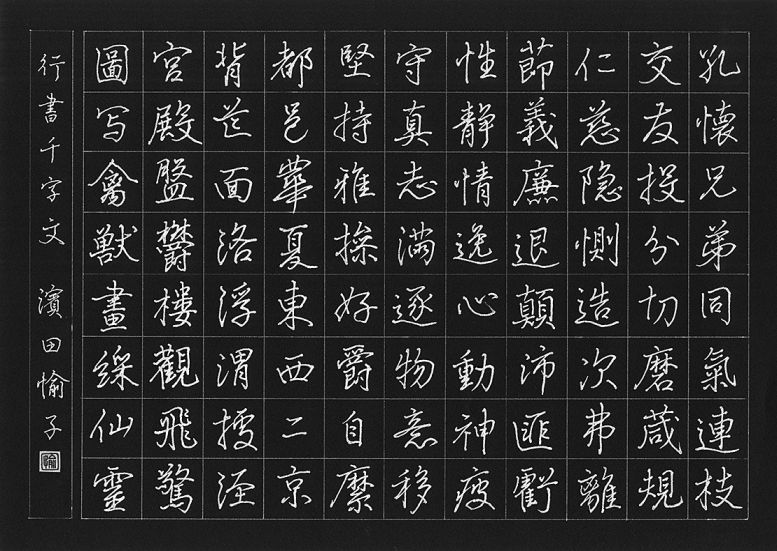 孔懐兄弟同氣連枝
交友投分切磨箴規
仁慈隠惻造次弗離
節義廉退顛沛匪虧
性静情逸心動神疲
守真志満逐物意移
堅持雅操好爵自縻
都邑華夏東西二京
背芒面洛浮渭據涇
宮殿盤欝樓觀飛驚
圖写禽獸畫綵仙靈
行書千字文 濱田愉子